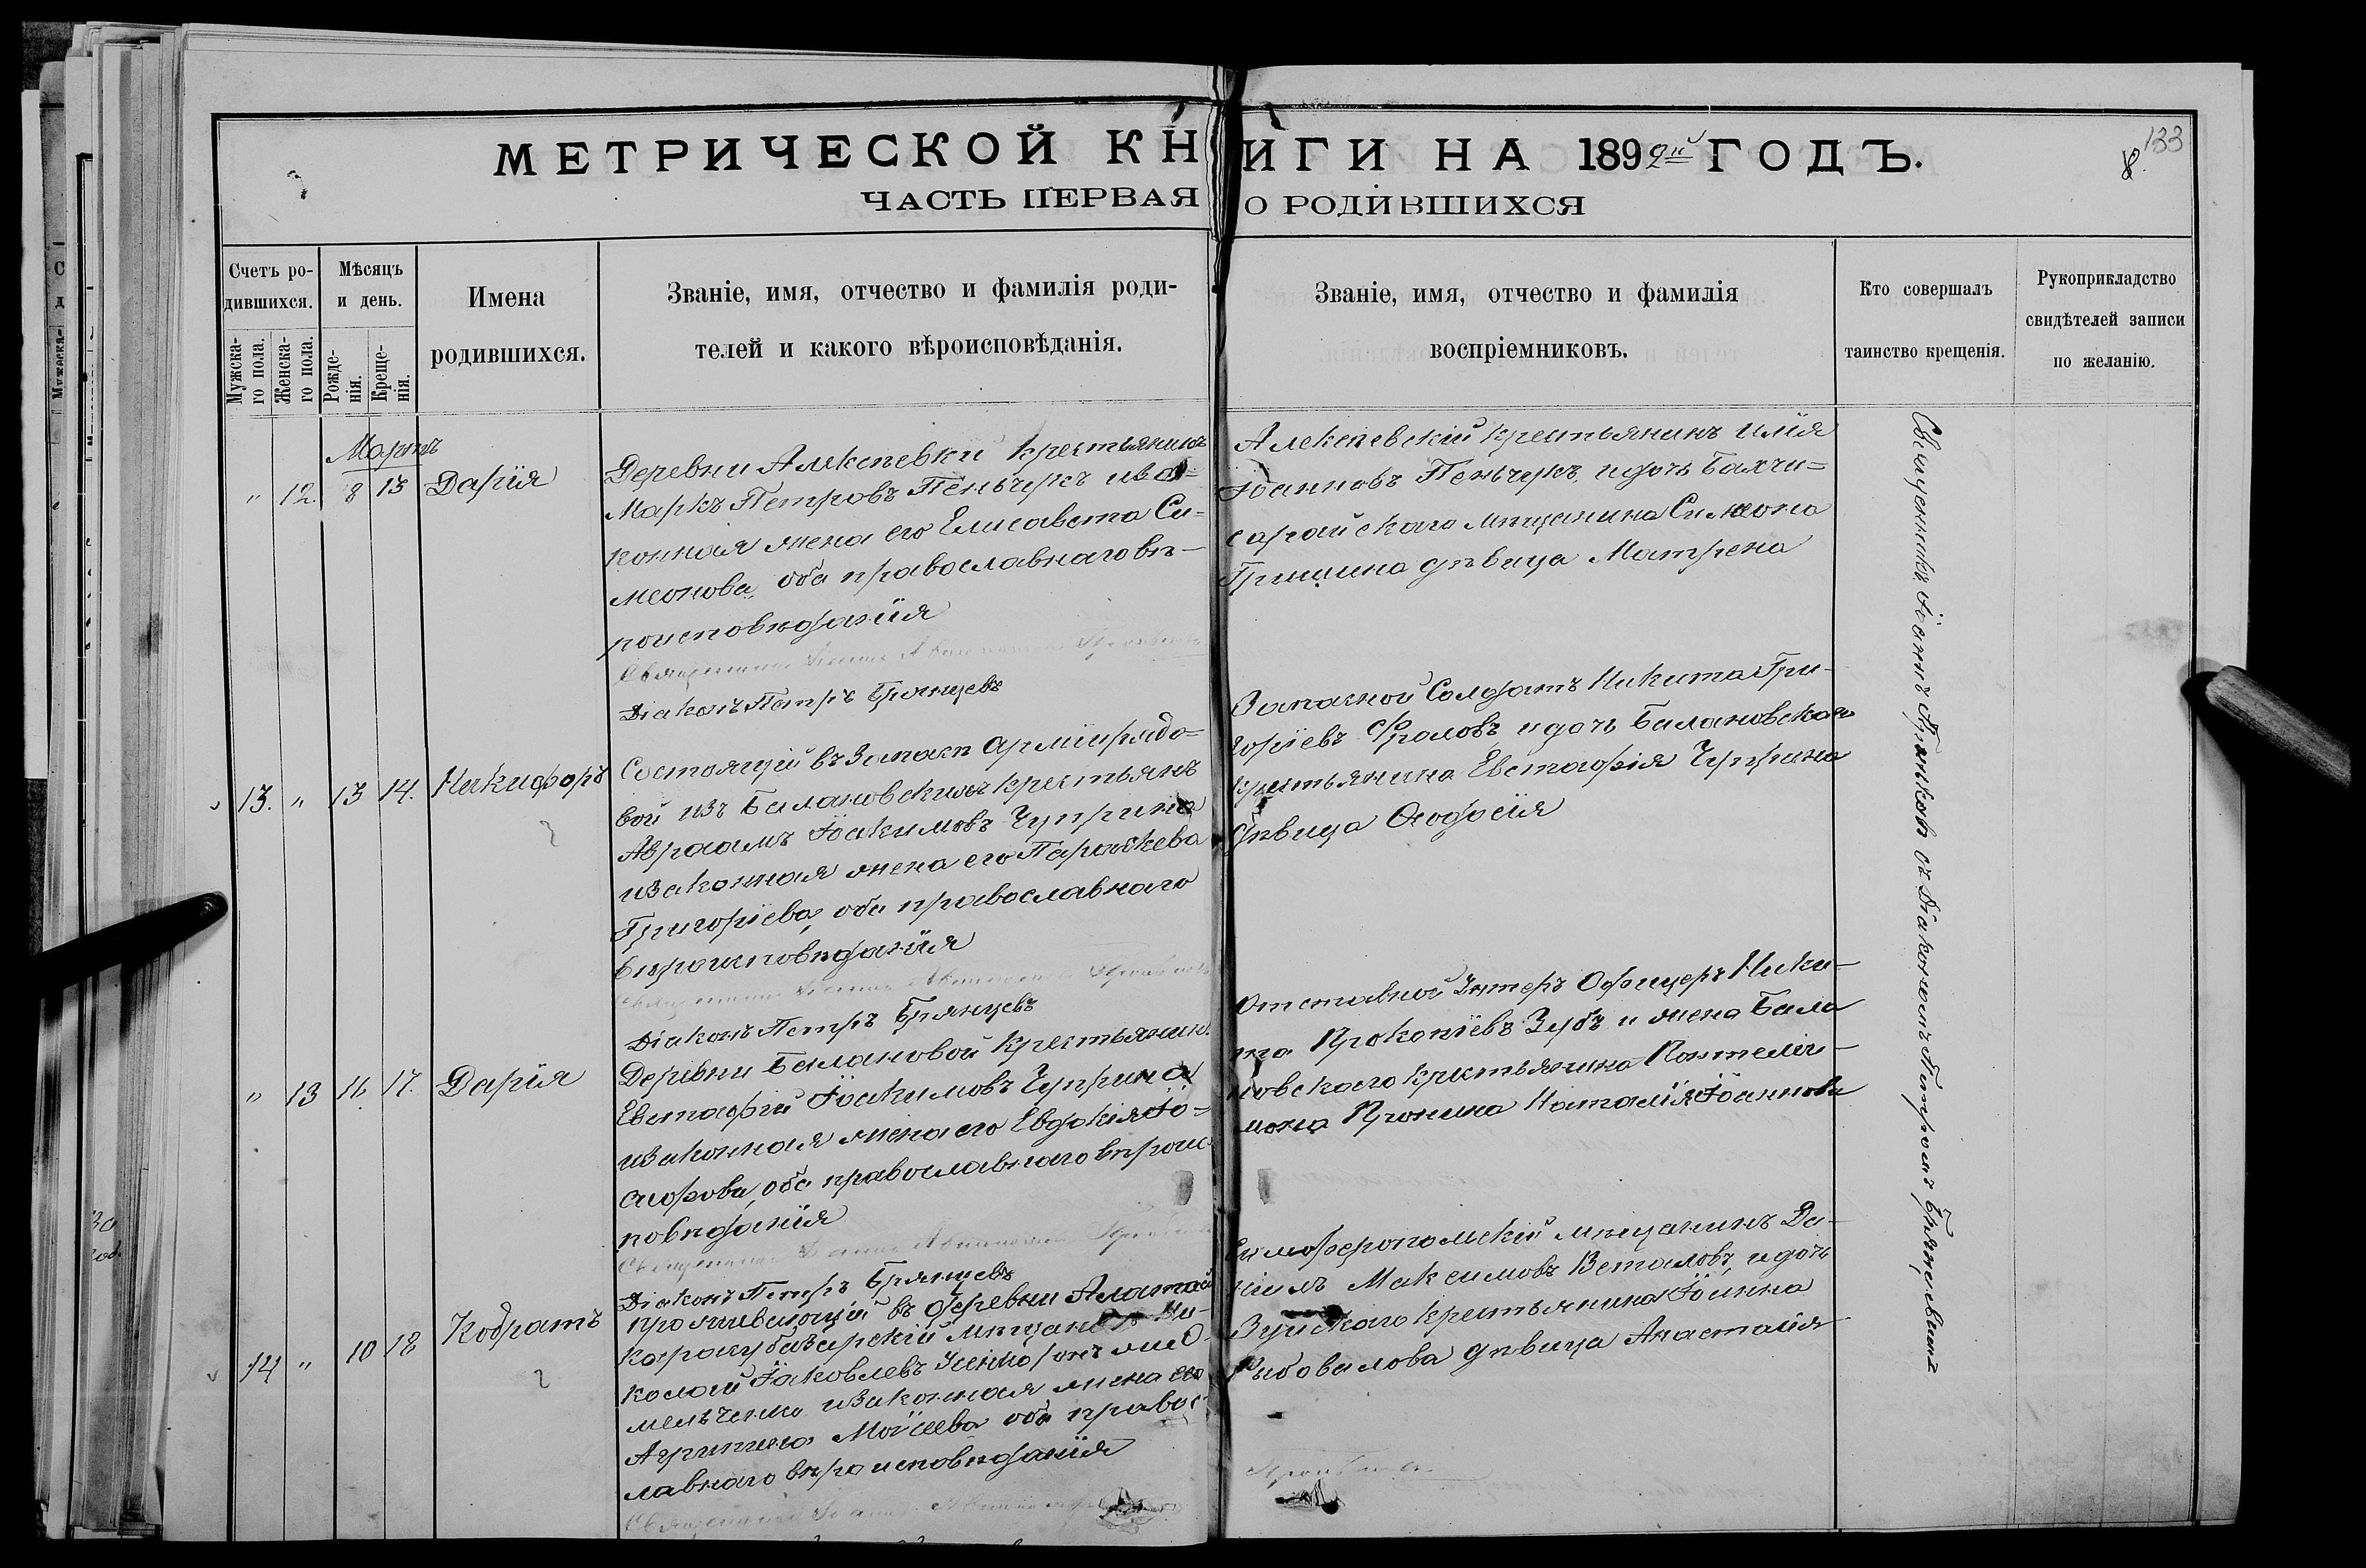 МЕТРИЧЕСКОЙ КНИГИ НА 1892й ГОДЪ.
133
8.
ЧАСТЬ ПЕРВАЯ О РОДИВШИХСЯ
Счетъ ро-
дившихся.
Мужска-
го пола.
Женска-
го пола.
Мѣсяцъ
и день.
Рожде-
нія.
Креще-
нія.
Имена
родившихся.
Званіе, имя, отчество и фамилія роди-
телей и какого вѣроисповѣданія.
Званіе, имя, отчество и фамилія
воспріемниковъ.
Кто совершалъ
таинство крещенія.
Рукоприкладство
свидѣтелей записи
по желанію.
Мартъ
" 12. 8 13 Дарія
Деревни Алексѣевки крестьянинъ
Маркъ Петровъ Пеньчукъ и за-
конная жена его Елисавета Си-
меонова, оба православнаго вѣ-
роисповѣданія
Священникъ
Діаконъ Петръ Брянцевъ
Алексѣевскій крестьянинъ Илія
Іоанновъ Пеньчукъ, и дочь Бахчи-
сарайскаго мѣщанина Симеона
Гришина дѣвица Матрена
13. " 13 14. Никифоръ
Состоящій въ Запасѣ Арміи рядо-
вой изъ Балановскихъ крестьянъ
Авраамъ Іоакимовъ Чуприна
и законная жена его Параскева
Григоріева, оба православнаго
вѣроисповѣданія
Священникъ
Діаконъ Петръ Брянцевъ
Запасной Солдатъ Никита Гри-
горіевъ Фроловъ и дочь Балановскаго
крестьянина Евстафія Чуприна
дѣвица Ѳеодосія
" 13 16. 17. Дарія
Деревни Балановой Крестьянинъ
Евстафій Іоакимовъ Чуприна
и законная жена его Евдокія Іо-
сифова, оба православнаго вѣроис-
повѣданія
Священникъ
Діаконъ Петръ Брянцевъ
Отставной Унтеръ Офицеръ Ники-
та Прокопіевъ Зубъ и жена Бала
новскаго крестьянина Пантелеи-
мона Пронина Наталія Іоаннова
14 " 10 18 Кодратъ
Проживающій въ деревни
Карасубазарскій мѣщанинъ Ни-
колай Іаковлевъ
мельченко и законная жена его
Агрипина Моѵсеева оба правос-
лавнаго вѣроисповѣданія
Священникъ
Симферопольскій мѣщанинъ Да-
ніилъ Максимовъ и дочь
Зуйскаго крестьянина Іоанна
дѣвица Анастасія
Священникъ Іоаннъ съ Діакономъ Петромъ Брянцевымъ